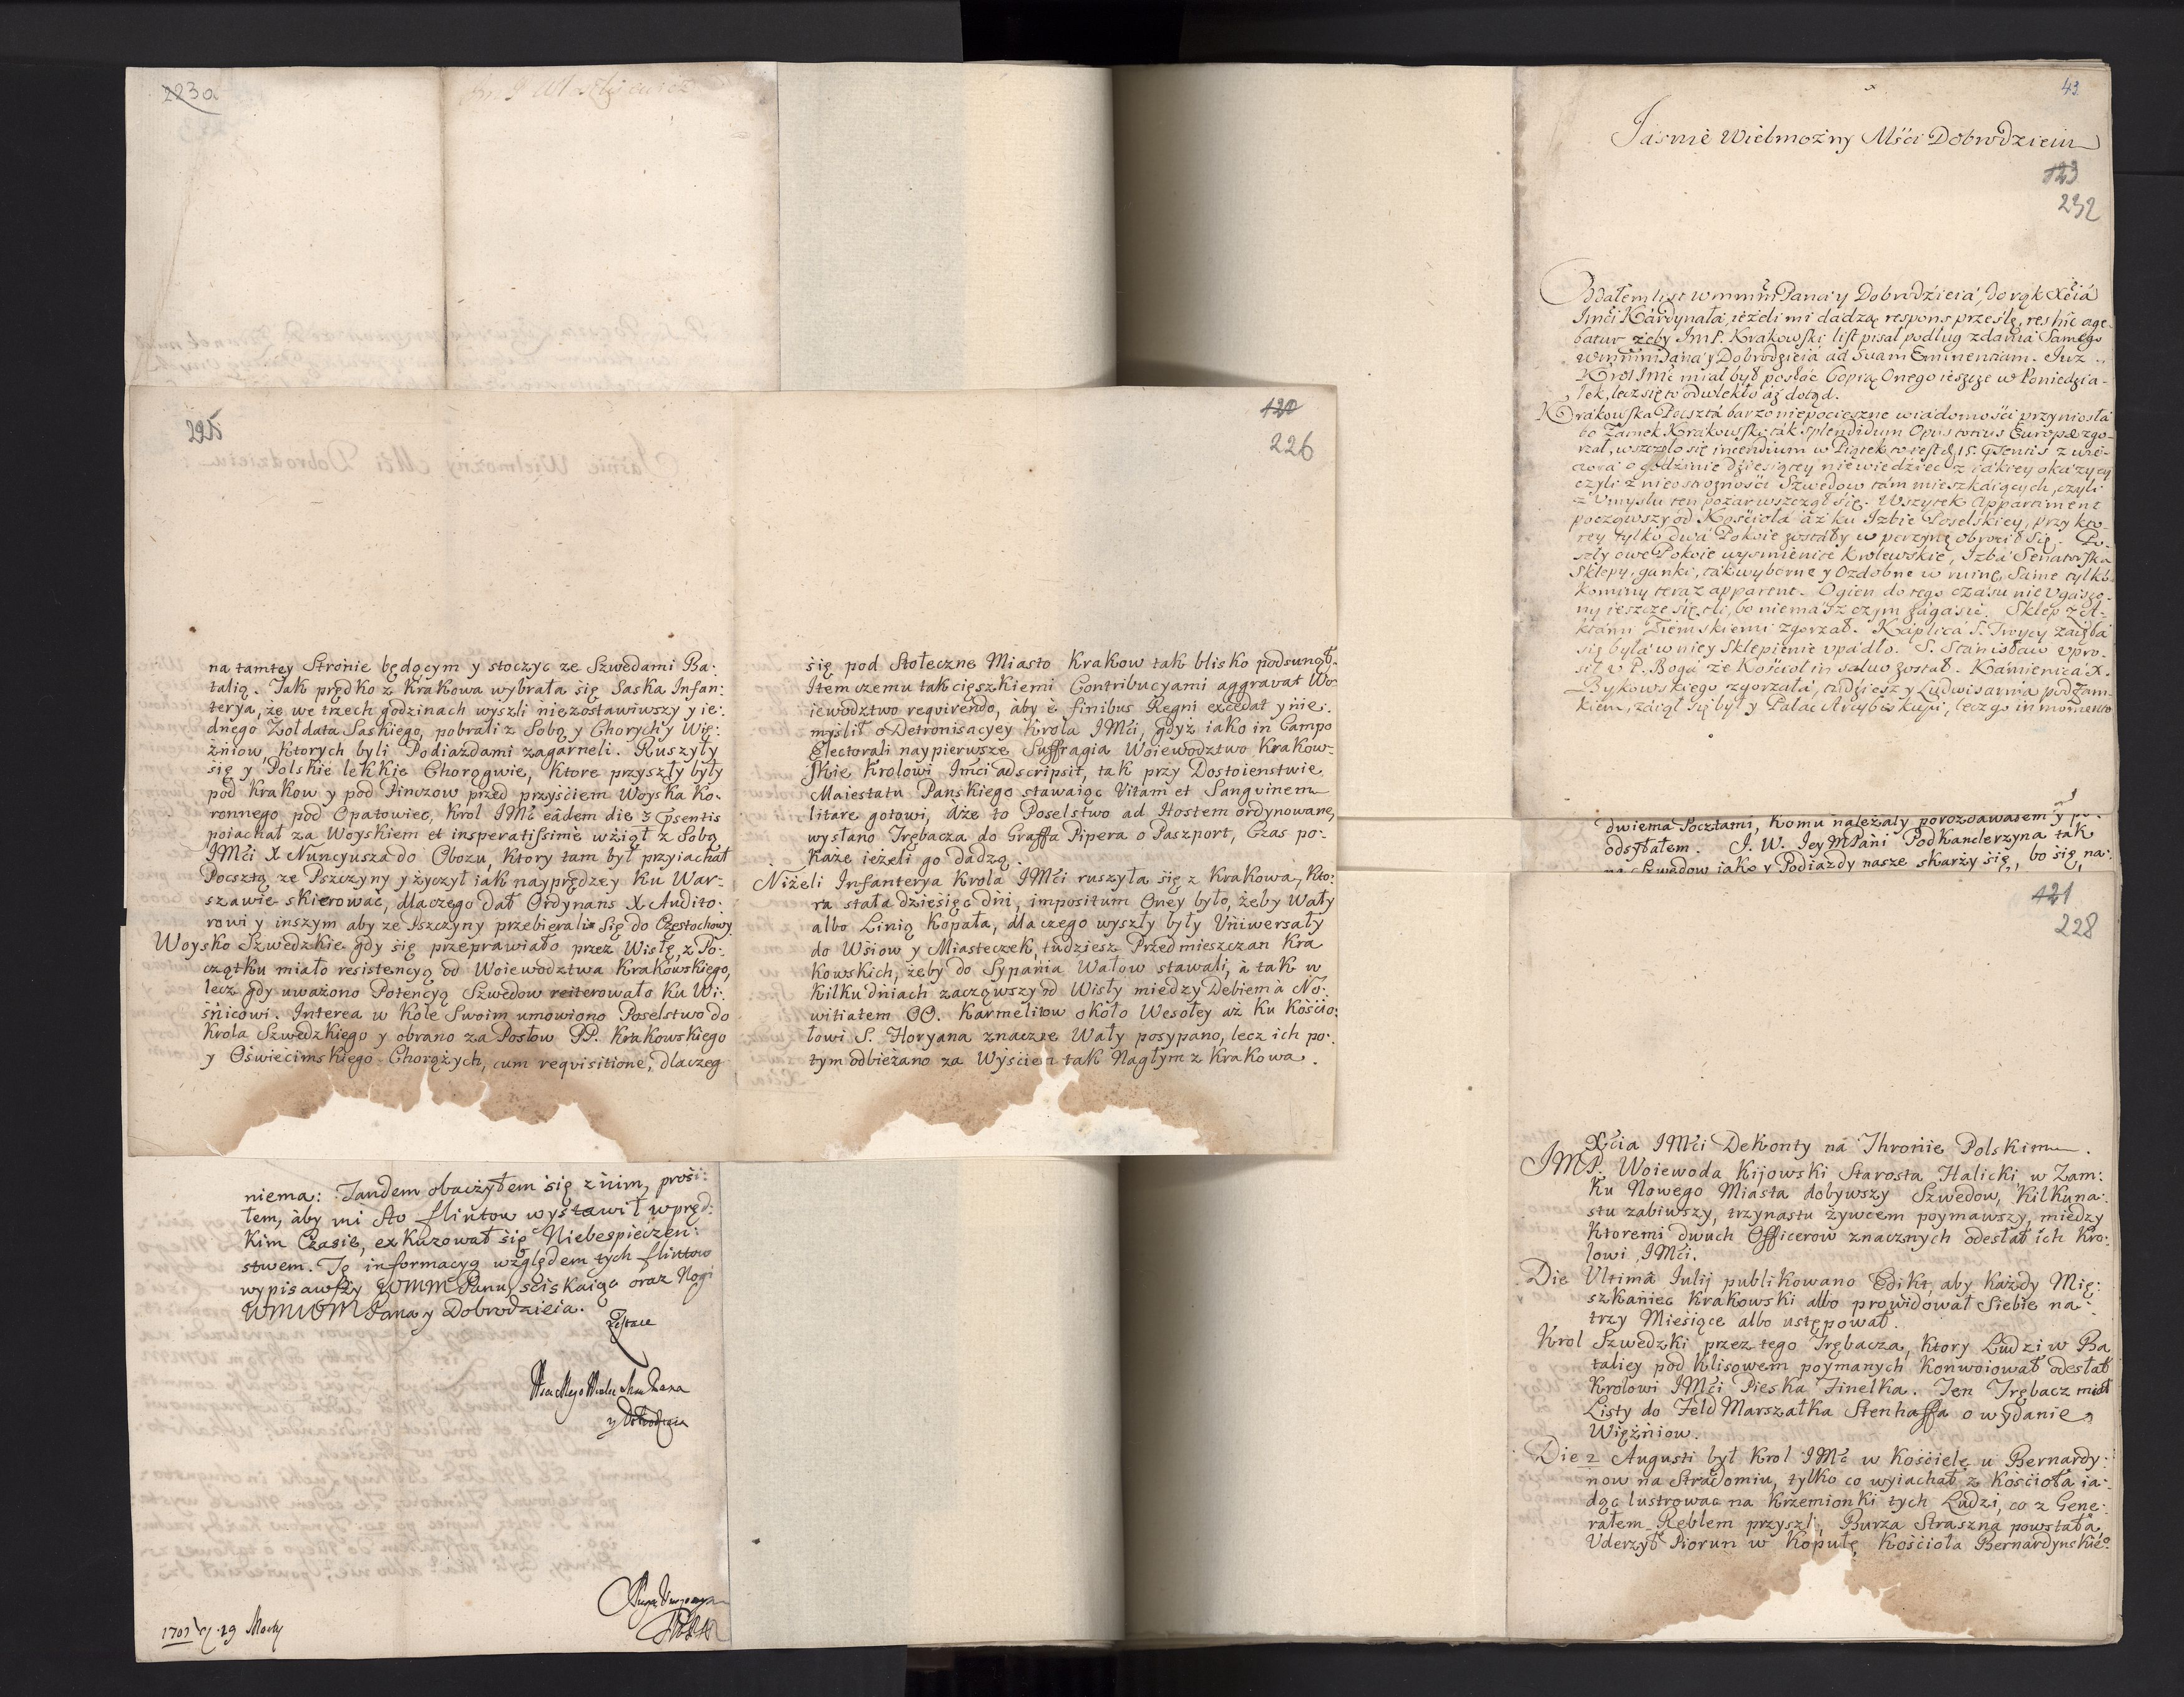 223a
225
120
226
na tamtey Stronie będącym y stoczyc ze Szwedami Ba:
talią. Tak prędko z Krakowa wybrała się Saska Infan:
terya, że we trzech godzinach wyszli niezostawiwszy y ie:
dnego Zołdata Saskiego, pobrali z Sobą y Chorych y Wię:
źniow, Ktorych byli Podiazdami zagarneli. Ruszyły
się y Polskie lekkie Chorągwie, Ktore przyszły były
pod Krakow y pod Pinczow przed przyściem Woyska Ko-
ronnego pod Opatowiec, Krol IMć eadem die 3 Psentis
poiachał za Woyskiem et insperatissimè wźiął z Sobą
IMći X Nuncyusza do Obozu, Ktory tam był przyiachał
Pocsztą ze Pszczyny y życzył iak nayprędzey Ku War-
szawie skierować, dlaczego dał Ordynans X Audito:
rowi y inszym aby ze Pszczyny przebierali się do Częstochowy
Woysko Szwedzkie gdy się przeprawiało przez Wisłę, z Po:
czątku miało resistencyą od Woiewodztwa Krakowskiego,
lecz gdy uważono Potencyą Szwedow reiterowało Ku Wi:
śnicowi. Interea w Kole Swoim umowiono Poselstwo do
Krola Szwedzkiego y obrano za Posłow PP. Krakowskiego
y Oświecimskiego Chorążych, cum requisitione, dlaczeg
się pod Stołeczne Miasto Krakow tak blisko podsunął.
Item czemu tak cięszkiemi Contribucyami aggravat Wo-
iewodztwo requirendo, aby è finibus Regni excedat y nie:
myślił o Detronisacyey Krola IMći, gdyż iako in Campo
Electorali naypierwsze Suffragia Woiewodztwo Krakow-
skie Krolowi Imći adscripsit, tak przy Dostoienstwie
Maiestatu Panskiego stawaiąc Vitam et Sangvinem
litare gotowi, Aże to Poselstwo ad Hostem ordynowane,
wysłano Trębacza do Graffa Pipera o Paszport, Czas po-
Każe ieżeli go dadzą.
Niżeli Infanterya Krola IMći ruszyła się z Krakowa, Kto:
ra stała dziesięć dńi, impositum Oney było, żeby Wały
albo Linią Kopała, dlaczego wyszły były Vniwersały
do Wśiow y Miasteczek, tudziesz Przedmieszczan Kra
kowskich, żeby do Sypania Wałow stawali, à tak w
Kilku dniach zacząwszy od Wisły miedzy Debiem à No:
witiatem OO. Karmelitow około Wesołey aż Ku Kośćio:
łowi S. Floryana znaczne Wały posypano, lecz ich po:
tym odbieżano za Wyściem tak Nagłym z Krakowa.
niema: Tandem obaczyłem się z nim, prosi:
łem, aby mi sto flintow wystawił w pręd:
Kim Czasie, exkuzował się Niebespieczeń:
stwem. Tę informacyą względem tych flintow
wypisawszy WMM Panu, sciskaiąc oraz Nogi
WMMM Pana y Dobrodzieia.
Zostaie
y Dobrodzieia
43
Jasnie Wielmożny Mści Dobrodzieiu
123
232
Oddałem list wmmm Pana y Dobrodzieia, do rąk Xcia
Imći Kardynała, ieżeli mi dadzą respons prześlę, res hic age-
batur żeby Im P. Krakowski list pisał podług zdania Samego
wmmm Pana y Dobrodzieia ad Suam Eminentiam. Iuż
Krol Imć miał był posłać Copią Onego ieszcze w Poniedzia-
łek, lecz się to odwlekło aż dotąd.
Krakowska Poczta barzo niepocieszne wiadomości przyniosła
bo Zamek Krakowski tak Splendidum Opus totius Europæ zgo-
rzał, wszczęło się incendium w Piątek to iest d. 15. Psentis z wie-
czora o godzinie dziesiątey niewiedziec z iakiey okazyey
czyli z nieostrożności Szwedow tam mieszkaiących, czyli
z Vmysłu ten pożar wszczął się. Wszytek Appartiment
począwszy od Kościoła aż ku Izbie Poselskiey, przy kto-
rey tylko dwa Pokoie zostały w perzynę obrocił się. Po-
szły owe Pokoie wysmienite Krolewskie, Izba Senatorska
Sklepy, ganki, tak wyborne y Ozdobne w ruinę, Same tylko
kominy teraz apparent. Ogien do tego czasu nie Vgaszo-
ny ieszcze się tli, bo niemasz czym zagasić. Sklep z A-
ktami Ziemskiemi zgorzał. Kaplica S. Troycy zaięła
się była w niey Sklepienie vpadło. S. Stanisław vpro-
sił v P. Boga że Kościoł in salvo został. Kamienica X.
Bykowskiego zgorzała, tudziesz y Ludwisarnia pod Zam-
kiem, zaiął się był y Pałac Arcybiskupi, lecz go in momento
dwiema Pocztami, Komu należały porozdawałem y po-
odsyłałem. J. W. Jey MPani Podkanclerzyna tak
na Szwedow iako y Podiazdy nasze skarży się, bo się na:
121
228
Xćia IMći DeKonty na Thronie Polskim.
IMP. Woiewoda Kijowski Starosta Halicki w Zam:
Ku Nowego Miasta dobywszy Szwedow, Kilkuna:
stu zabiwszy, trzynastu żywcem poymawszy, miedzy
Ktoremi dwuch Officerow znacznych odesłał ich Kro:
lowi IMći.
Die Ultima Iulij publikowano Edikt, aby każdy Mię:
szkaniec Krakowski albo prowidował Siebie na
trzy Miesiące albo ustępował.
Krol Szwedzki przez tego Trębacza, Ktory Ludzi w Ba
taliey pod Klisowem poymanych Konwoiował odesłał
Krolowi IMći Pieska Finelka. Ten Trębacz miał
Listy do Feld Marszałka Stenhaffa o wydanie
Więźniow.
Die 2 Augusti był Krol IMć w Kościele u Bernardy:
now na Stradomiu, tylko co wyiachał z Kościoła ia:
dąc lustrowac na Krzemionki tych Ludzi, co z Gene:
rałem Reblem przyszli, Burza Straszna powstała,
Vderzył Piorun w Kopułę Kościoła Bernardynskiego